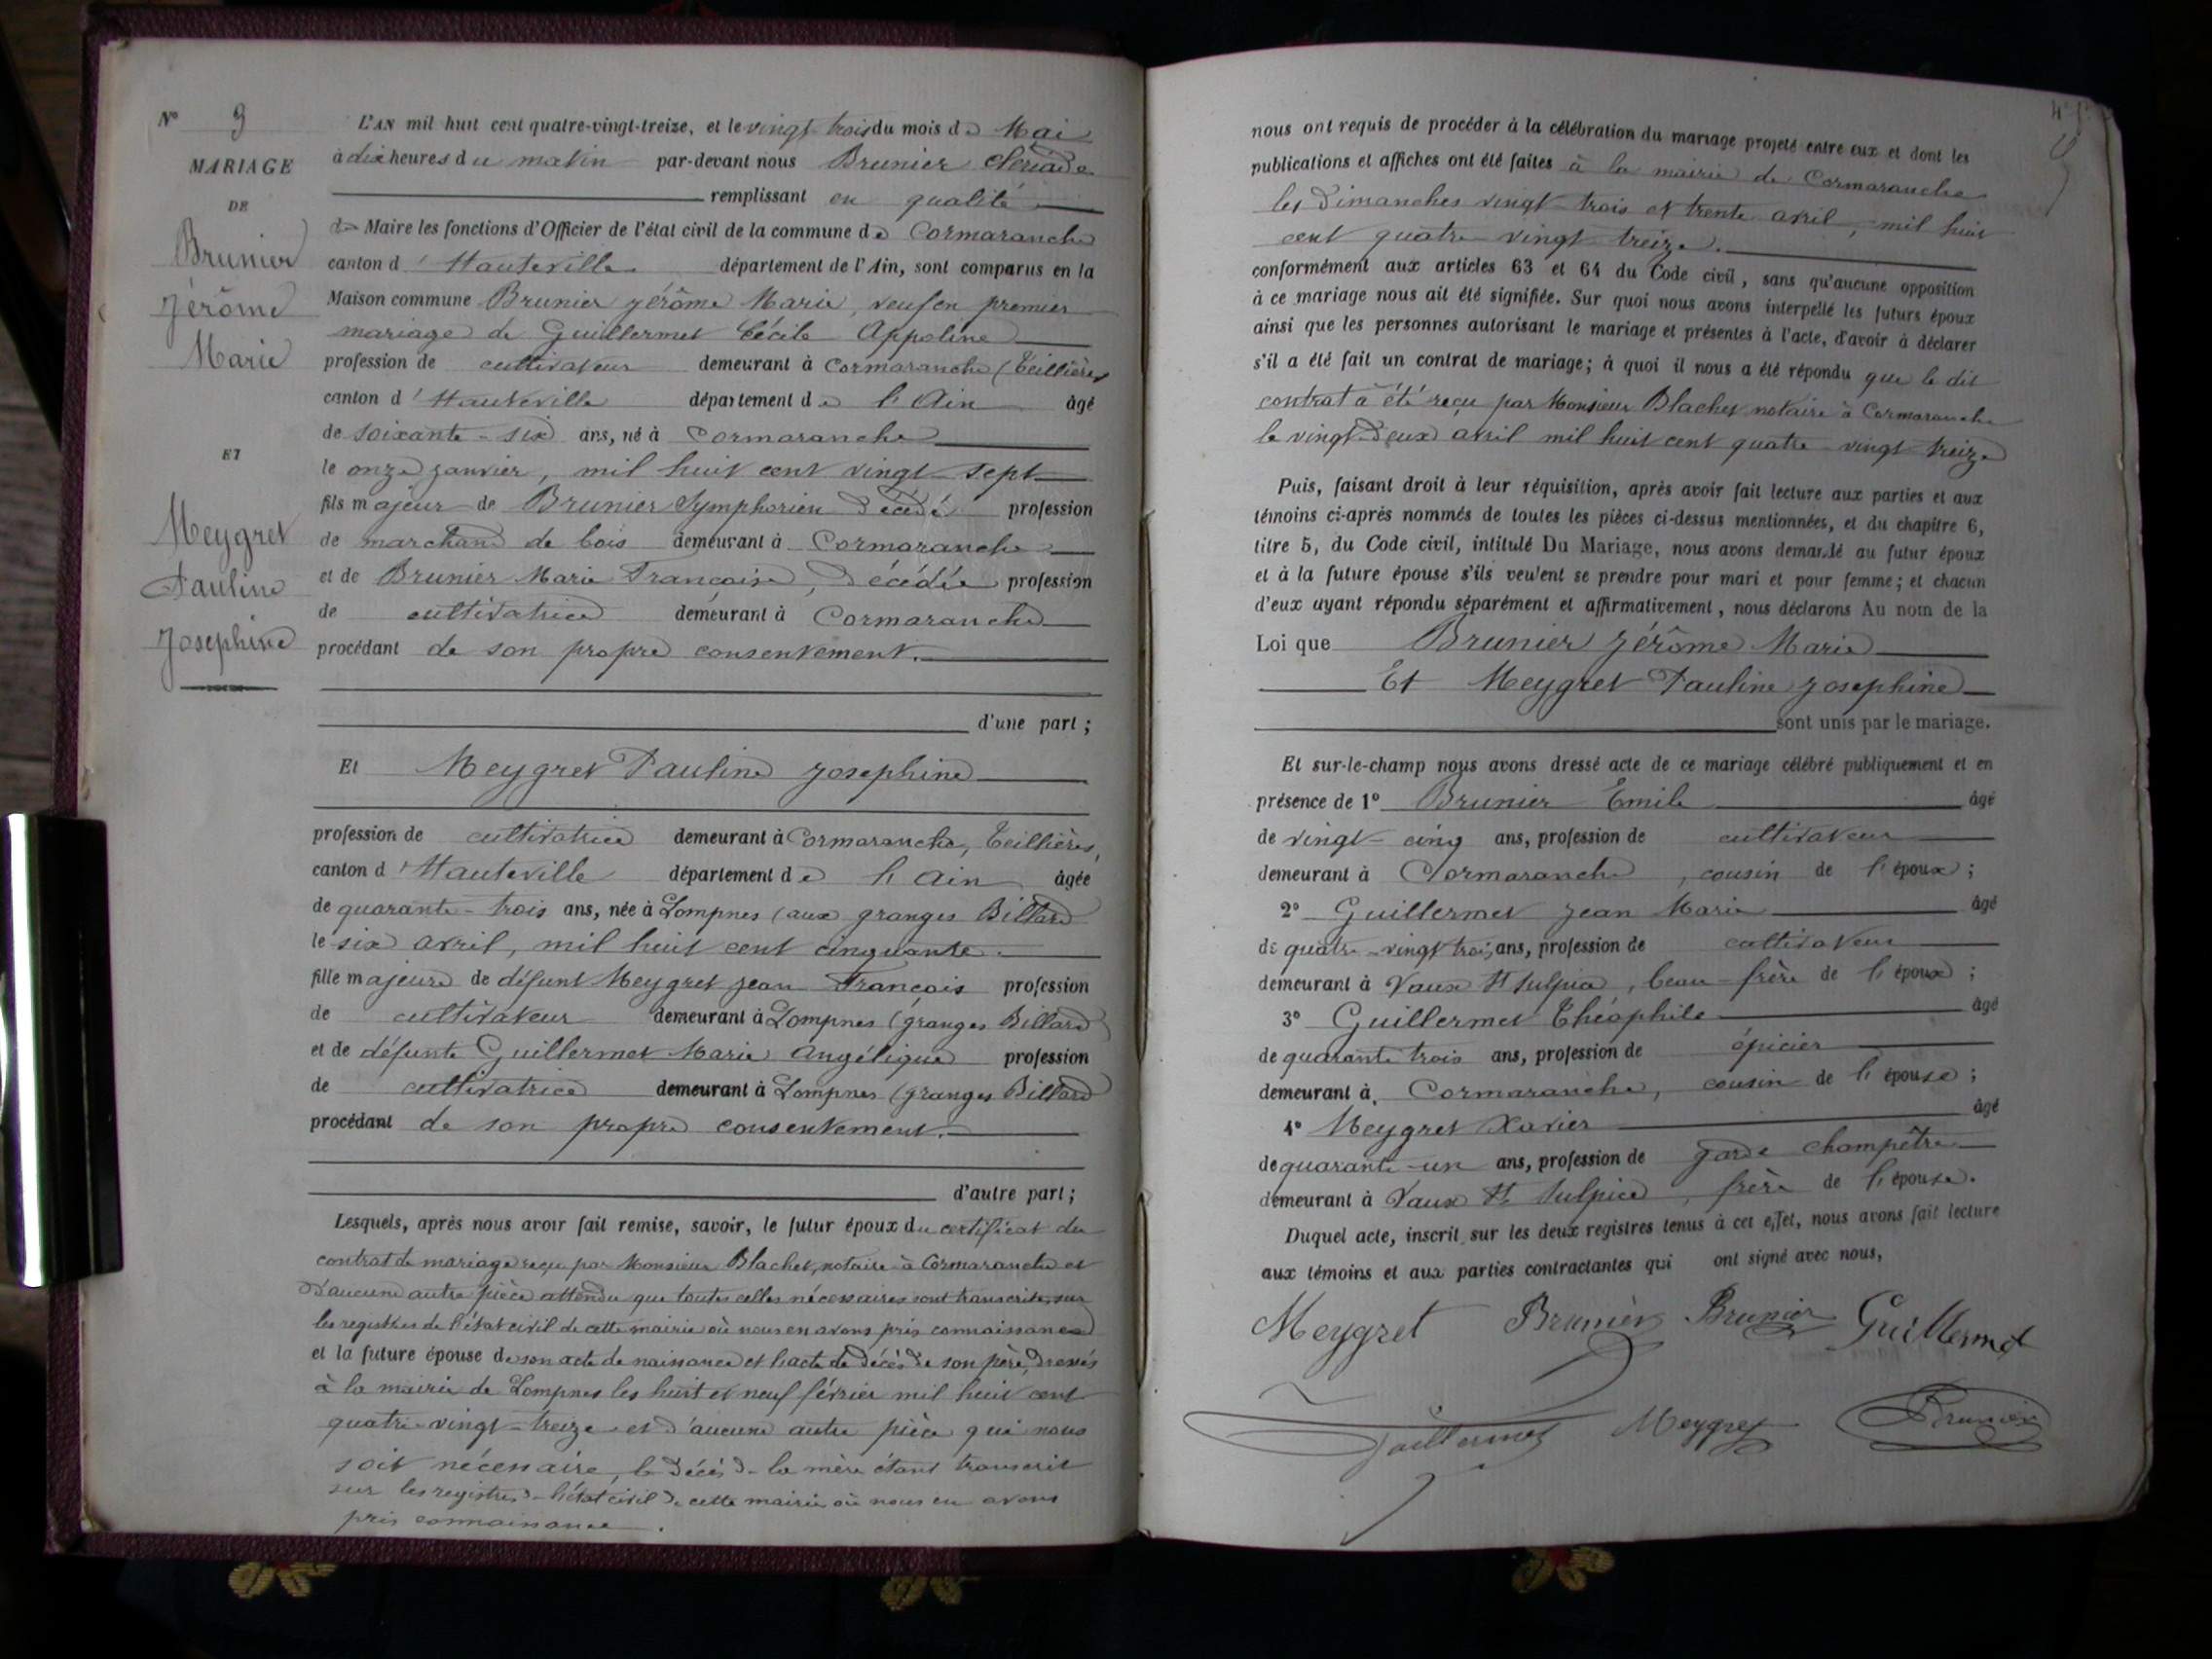 N° 9
MARIAGE
DE
Brunier
Jérôme
Marie
ET
Meygret
Pauline
Josephine
L'AN mil huit cent quatre-vingt-treize, et le vingt trois du mois de Mai
à dix heures du matin par-devant nous Brunier
remplissant en qualité
de Maire les fonctions d'Officier de l'état civil de la commune de Cormaranche
canton d'Hauteville département de l'Ain, sont comparus en la
Maison commune Brunier Jérôme Marie, veuf en premier
mariage de Guillermet Cécile Appoline
profession de cultivateur demeurant à Cormaranche (Teillières
canton d'Hauteville département de l'Ain âgé
de soixante-six ans, né à Cormaranche
le onze janvier, mil huit cent vingt-sept
fils majeur de Brunier Symphorien décédé profession
de marchand de bois demeurant à Cormaranche
et de Brunier Marie Françoise, décédée profession
de cultivatrice demeurant à Cormaranche
procédant de son propre consentement.
d'une part;
Et Meygret Pauline Josephine
profession de cultivatrice demeurant à Cormaranche, Teillières,
canton d'Hauteville département de l'Ain âgée
de quarante-trois ans, née à Lompnes (aux granges Billard
le six avril, mil huit cent cinquante.
fille majeure de défunt Meygret Jean François profession
de cultivateur demeurant à Lompnes (granges Billard)
et de défunte Guillermet Marie Angélique profession
de cultivatrice demeurant à Lompnes (granges Billard)
procédant de son propre consentement.
d'autre part;
Lesquels, après nous avoir fait remise, savoir, le futur époux du certificat du
contrat de mariage reçu par Monsieur Blachet, notaire à Cormaranche et
d'aucune autre pièce attendu que toutes celles nécessaires sont transcrites sur
les registres de l'état civil de cette mairie où nous en avons pris connaissance
et la future épouse de son acte de naissance et l'acte de décès de son père, dressés
à la mairie de Lompnes les huit et neuf février mil huit cent
quatre-vingt-treize et d'aucune autre pièce qui nous
soit nécessaire, le décès de la mère étant transcrit
sur les registres de l'état civil de cette mairie où nous en avons
pris connaissance.
nous ont requis de procéder à la célébration du mariage projeté entre eux et dont les
publications et affiches ont été faites à la mairie de Cormaranche
les dimanches vingt-trois et trente avril, mil huit
cent quatre-vingt-treize.
conformément aux articles 63 et 64 du Code civil, sans qu'aucune opposition
à ce mariage nous ait été signifiée. Sur quoi nous avons interpellé les futurs époux
ainsi que les personnes autorisant le mariage et présentes à l'acte, d'avoir à déclarer
s'il a été fait un contrat de mariage; à quoi il nous a été répondu que le dit
contrat a été reçu par Monsieur Blachet notaire à Cormaranche
le vingt-deux avril mil huit cent quatre-vingt-treize
Puis, faisant droit à leur réquisition, après avoir fait lecture aux parties et aux
témoins ci-après nommés de toutes les pièces ci-dessus mentionnées, et du chapitre 6,
titre 5, du Code civil, intitulé Du Mariage, nous avons demandé au futur époux
et à la future épouse s'ils veulent se prendre pour mari et pour femme; et chacun
d'eux ayant répondu séparément et affirmativement, nous déclarons Au nom de la
Loi que Brunier Jérôme Marie
Et Meygret Pauline Josephine
sont unis par le mariage.
Et sur-le-champ nous avons dressé acte de ce mariage célébré publiquement et en
présence de 1° Brunier Emile âgé
de vingt-cinq ans, profession de cultivateur
demeurant à Cormaranche, cousin de l'époux;
2° Guillermet Jean Marie âgé
de quatre-vingt trois ans, profession de cultivateur
demeurant à Vaux St Sulpice, beau-frère de l'époux;
3° Guillermet Théophile âgé
de quarante trois ans, profession de épicier
demeurant à Cormaranche, cousin de l'épouse;
4° Meygret Xavier âgé
de quarante-un ans, profession de garde champêtre
demeurant à Vaux St Sulpice, frère de l'épouse.
Duquel acte, inscrit sur les deux registres tenus à cet effet, nous avons fait lecture
aux témoins et aux parties contractantes qui ont signé avec nous,
Meygret Brunier Brunier Guillermet
Guillermet Meygret Brunier